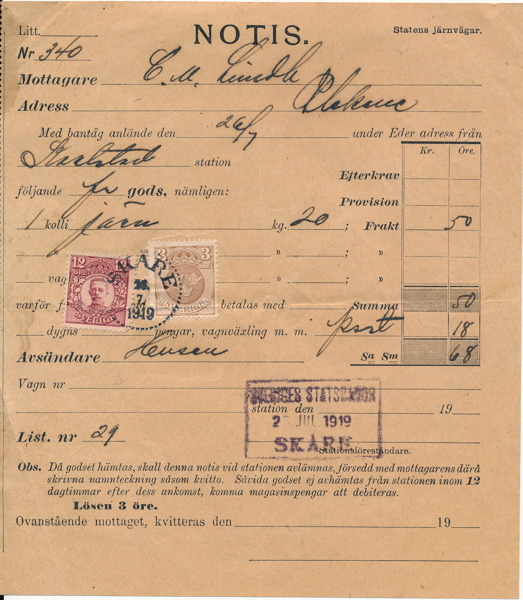 Litt.
NOTIS.
Statens järnvägar.
Nr 340
Mottagare C. M.
Adress
Med bantåg anlände den 26/7 under Eder adress från
station
Kr. Öre.
Efterkrav
följande fr gods, nämligen:
Provision
1 kolli järn kg. 20 ; Frakt 50
" ; "
vag " ; "
varför f betalas med Summa 50
dygns pengar, vagnväxling m. m. port 18
Avsändare Hensen Sa Sm 68
12 ÖRE SVERIGE
3 3 SVERIGE
SKÅRE
26.
7.
1919
Vagn nr
SVERIGES STATSBANOR
station den 19
2 JUL 1919
SKÅRE
List. nr 29
Stationsföreståndare.
Obs. Då godset hämtas, skall denna notis vid stationen avlämnas, försedd med mottagarens därå
skrivna namnteckning såsom kvitto. Såvida godset ej avhämtas från stationen inom 12
dagtimmar efter dess ankomst, komma magasinspengar att debiteras.
Lösen 3 öre.
Ovanstående mottaget, kvitteras den 19